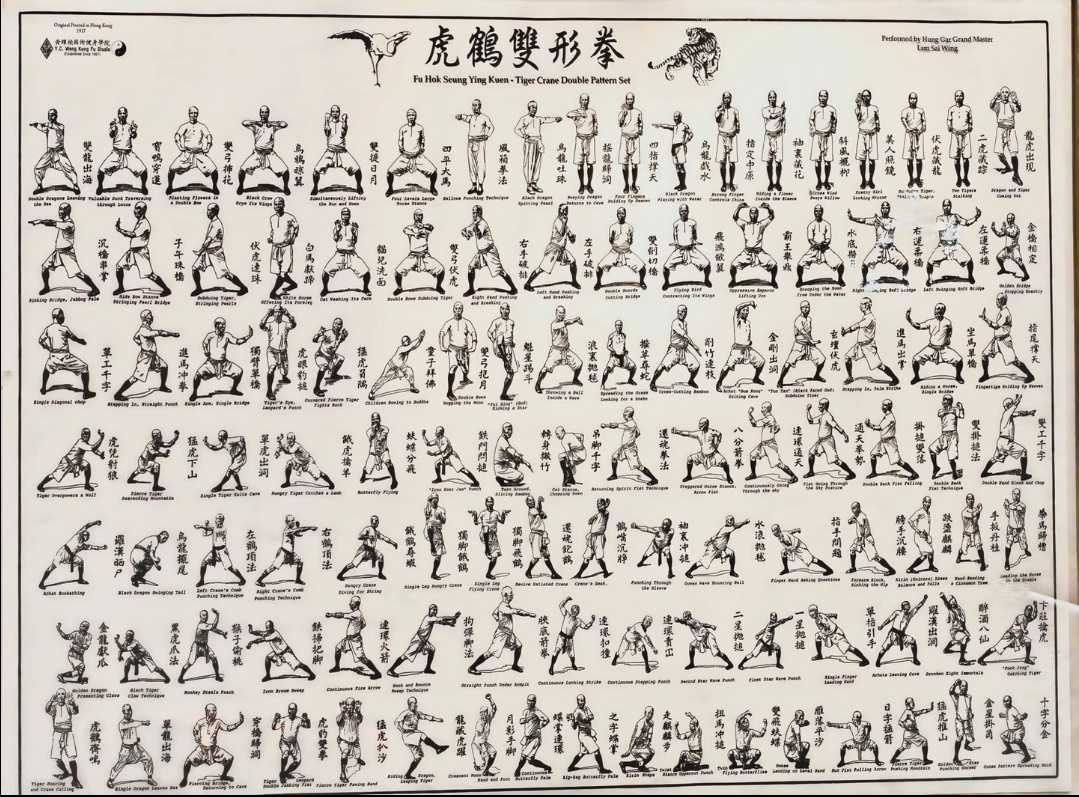 Original Printed in Hong Kong
1957
黃耀楨術健身學院
Y.C. Wong Kung Fu Studio
虎鶴雙形拳
Fu Hok Seung Ying Kuen - Tiger Crane Double Pattern Set
Performed by Hung Gar Grand Master
Lam Sai Wing
雙龍出海
雙弓插花
雙提日月
四平大馬
風箱拳法
烏龍吐珠
四指撐天
烏龍戲水
指定中原
袖裏藏花
美人照鏡
伏虎藏龍
二虎藏踪
龍虎出現
Double Dragons Leaving the Sea
Valuable Duck Traversing through Lotus
Planting Flowers in a Double Bow
Black Crow Drys Its Wings
Simultaneously Lifting the Sun and Moon
Four Levels Large Horse Stance
Bellows Punching Technique
Black Dragon Spitting Pearl
Four Fingers Holding Up Heaven
Black Dragon Playing with Water
Strong Finger Controls China
Hiding a Flower Inside the Sleeve
Pretty Girl Looking Mirror
Two Tigers Stalking
Dragon and Tiger Coming Out
子午珠橋
白馬獻蹄
貓兒洗面
雙弓伏虎
右手破排
左手破排
雙劍切橋
飛鴻斂翼
霸王舉鼎
右運柔橋
左運柔橋
金橋相定
Sinking Bridge, Jabbing Palm
Side Bow Stance Stringing Pearl Bridge
Subduing Tiger, Stringing Pearls
White Horse Offering Its Foreleg
Cat Washing Its Face
Double Bows Subduing Tiger
Right Hand Pushing and Breaking
Left Hand Pushing and Breaking
Double Swords Cutting Bridge
Flying Bird Contracting Its Wings
Oppressive Emperor Lifting Urn
Scooping the Moon from Under the Water
Left Swinging Soft Bridge
單工千字
進馬冲拳
獨臂單橋
虎眼豹搥
猛虎負隅
童子拜佛
雙弓抱月
魁星踢斗
浪裏拋毬
撥草尋蛇
削竹連枝
金剛出洞
玄壇伏虎
進馬出掌
坐馬單橋
指尾撐天
Single Diagonal chop
Stepping In, Straight Punch
Single Arm, Single Bridge
Tiger's Eye, Leopard's Punch
Cornered Fierce Tiger Fights Back
Children Bowing to Buddha
Double Bows Hugging the Moon
Throwing a Ball Inside a Wave
Spreading the Grass Looking for a Snake
Cross-Cutting Bamboo
Stepping In, Palm Strike
Riding a Horse, Single Bridge
Fingertips Holding Up Heaven
虎兕對狼
猛虎下山
單虎出洞
餓虎擒羊
蚨蝶分飛
鐵門閂搥
轉身撇竹
吊脚千字
還魂拳法
八分箭拳
連環通天
通天拳勢
掛搥雙落
雙掛搥法
雙工千字
Tiger Overpowers a Wolf
Fierce Tiger Descending Mountain
Single Tiger Exits Cave
Hungry Tiger Catches a Lamb
Butterfly Flying
"Iron Door Jam" Punch
Turn Around, Slicing Bamboo
Cat Stance, Chopping Down
Returning Spirit Fist Technique
Staggered Horse Stance, Arrow Fist
Continuously Going Through the Sky
Fist Going Through the Sky Posture
Double Bank Fist Falling
Double Bank Fist Technique
Double Hand Block and Chop
羅漢晒尸
烏龍擺尾
左鶴頂法
右鶴頂法
餓鶴尋蝦
獨脚餓鶴
獨脚飛鶴
還魂飽鶴
鶴嘴沉睜
袖裏冲搥
水浪拋毬
指手問路
膀手沉腰
跌盪麒麟
手扳丹桂
帶馬歸槽
Arhat Sunbathing
Black Dragon Swinging Tail
Left Crane's Comb Punching Technique
Right Crane's Comb Punching Technique
Hungry Crane Diving for Shrimp
Single Leg Hungry Crane
Single Leg Flying Crane
Revive Satiated Crane
Crane's Beak
Punching Through the Sleeve
Ocean Wave Bouncing Ball
Finger Hand Asking Questions
Forearm Block, Sinking the Hip
Kirin (Unicorn) Loses Balance and Falls
Hand Bending a Cinnamon Tree
Leading the Horse to the Stable
金龍獻爪
黑虎爪法
猴子偷桃
鐵掃把脚
連環火箭
拘彈脚法
腋底箭拳
連環扣搥
二星拋搥
一星拋搥
單指引手
羅漢出洞
醉酒八仙
卞莊擒虎
Golden Dragon Presenting Claws
Black Tiger Claw Technique
Monkey Steals Peach
Iron Broom Sweep
Continuous Fire Arrow
Hook and Bounce Sweep Technique
Straight Punch Under Armpit
Continuous Locking Strike
Continuous Stepping Punch
Second Star Wave Punch
First Star Wave Punch
Single Finger Leading Hand
Arhats Leaving Cave
Drunken Eight Immortals
Catching Tiger
虎鶴齊鳴
單龍出海
穿橋歸洞
虎豹雙拳
猛虎扒沙
龍藏虎躍
月影手脚
蝶掌連環
之字縐掌
走麒麟步
扭馬冲搥
雙飛蚨蝶
雁落平沙
日字搥箭
猛虎推山
金星掛角
十字分金
Tiger Roaring and Crane Calling
Single Dragon Leaves Sea
Piercing Bridge, Returning to Cave
Fierce Tiger Pawing Sand
Continuous Butterfly Palm
Zig-Zag Butterfly Palm
Kirin Steps
Twin Flying Butterflies
Goose Landing on Level Sand
Sun Fist Pulling Arrow
Fierce Tiger Pushing Mountain
Cross Pattern Spreading Gold